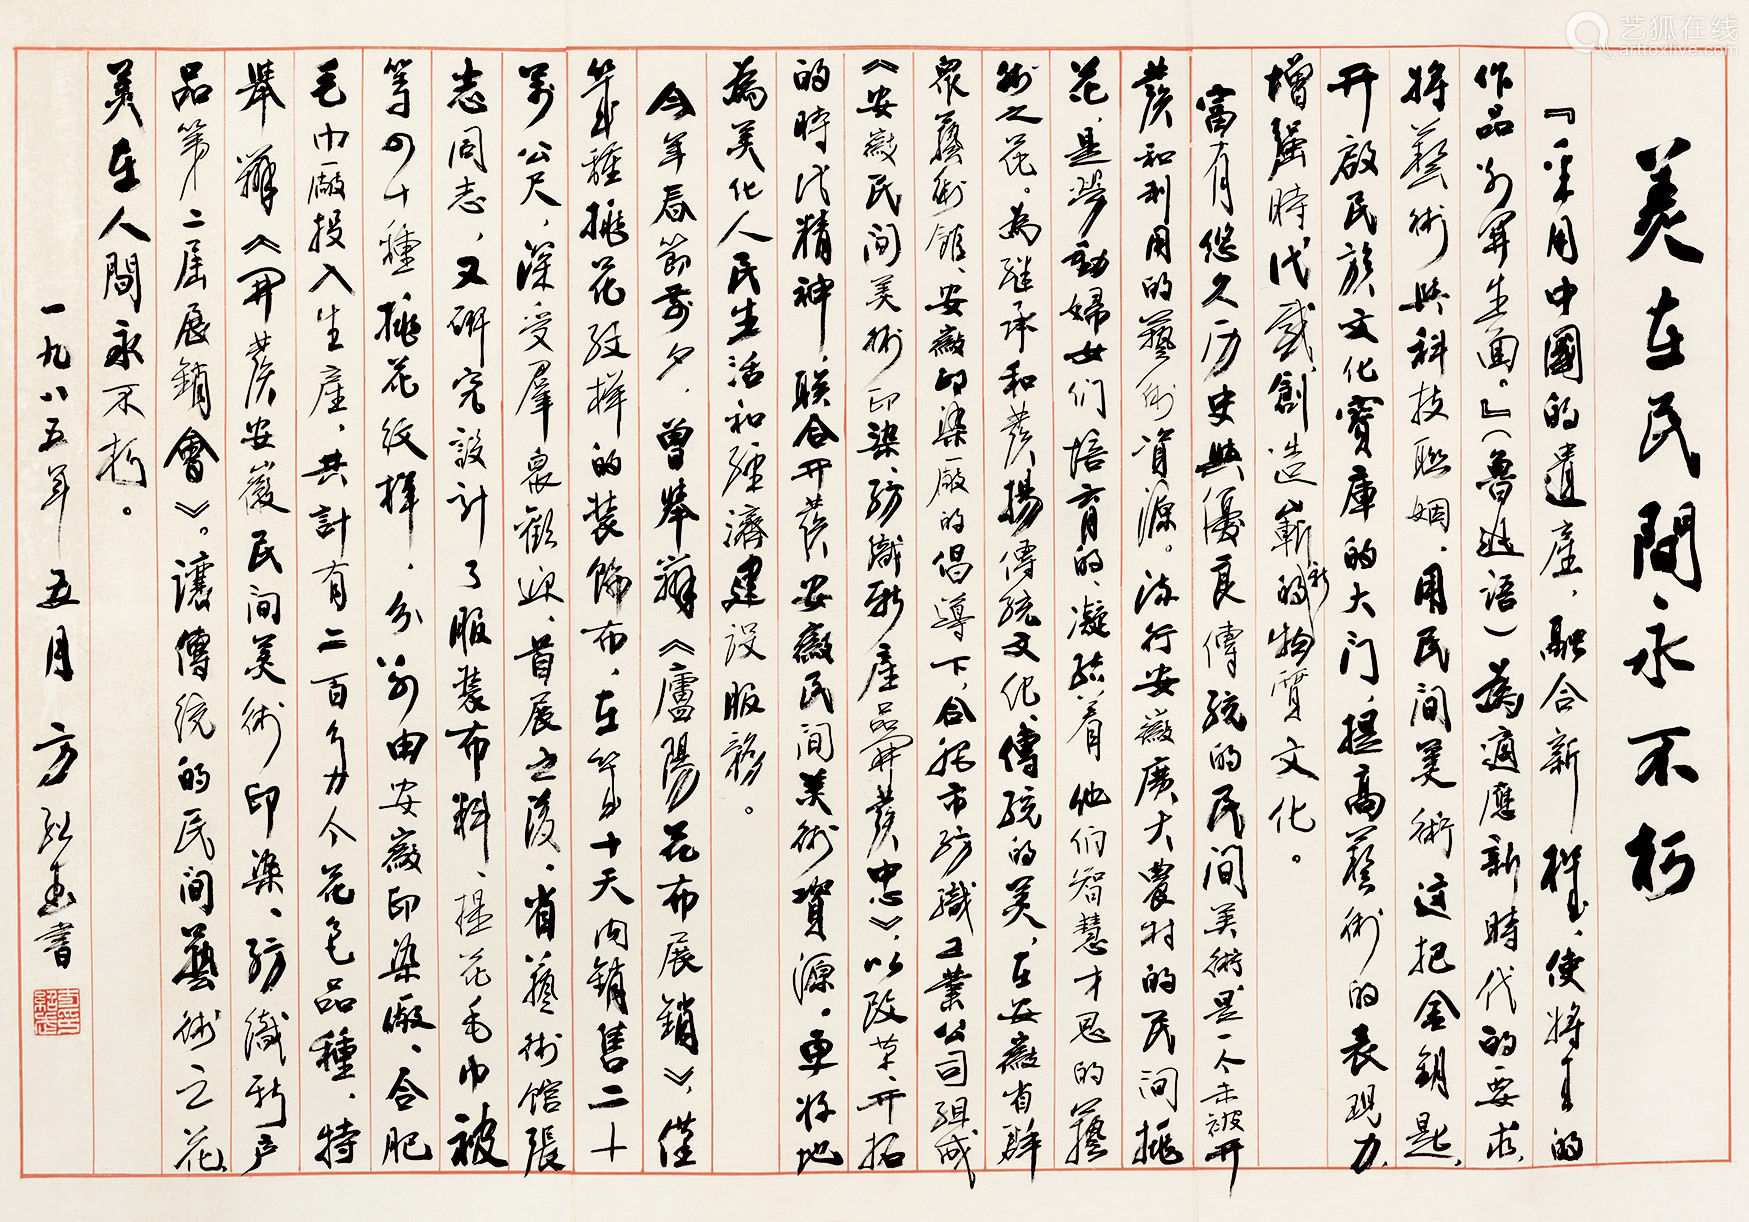 美在民間永不朽
『采用中國的遺產，融合新樣，使將来的
作品别開生面。』（魯迅語）為適應新時代的要求，
將藝術與科技聯姻，用民间美術这把金鑰匙，
开啟民族文化寶庫的大门，提高藝術的表現力，
增强時代感，創造嶄新的物質文化。
富有悠久历史與優良傳統的民间美術是一个未被开
發和利用的藝術資源。流行安徽廣大農村的民间挑
花，是勞動婦女们培育的、凝結着她们智慧才思的藝
術之花。為继承和發揚傳統文化，傳統的美，在安徽省群
衆藝術館、安徽印染厰的倡導下，合肥市紡織工業公司組成
《安徽民间美術印染、紡織新產品開發中心》，以改革、开拓
的時代精神，联合开發安徽民间美術資源。更好地
為美化人民生活和經濟建设服務。
今年春節前夕，曾舉辦《廬陽花布展銷》，僅
年種挑花纹樣的装飾布，在年十天内銷售二十
萬公尺，深受羣衆歡迎，首展之後，省藝術馆張
志同志，又研究設计了服装布料、提花毛巾被
等四十種挑花纹樣，分别由安徽印染廠、合肥
毛巾厰投入生產，共計有二百多个花色品種，特
舉辦《開發安徽民间美術印染、紡織新产
品第二届展銷會》。讓傳統的民间藝術之花，
美在人間永不朽。
一九八五年五月方紹武書
艺狐在线
artfoxlive.com